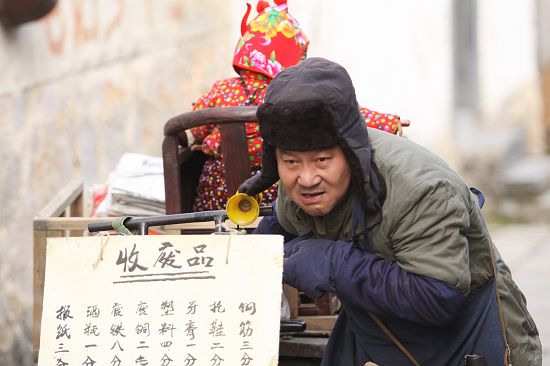 收废品
报纸三分
酒瓶一分
废铁八分
废铜二
塑料四分
牙膏一分
拖鞋二分
钢筋三分